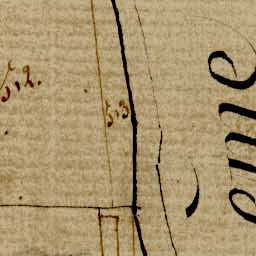 512.
513
ème